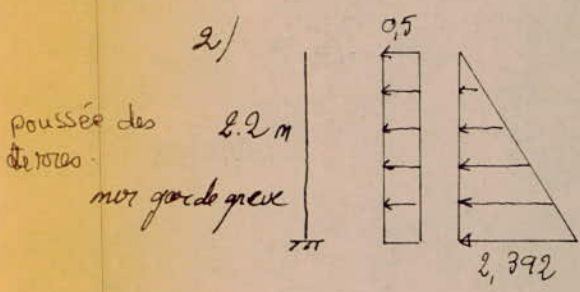 2/
0,5
poussée des
terres.
2.2 m
mur garde greve
2, 392